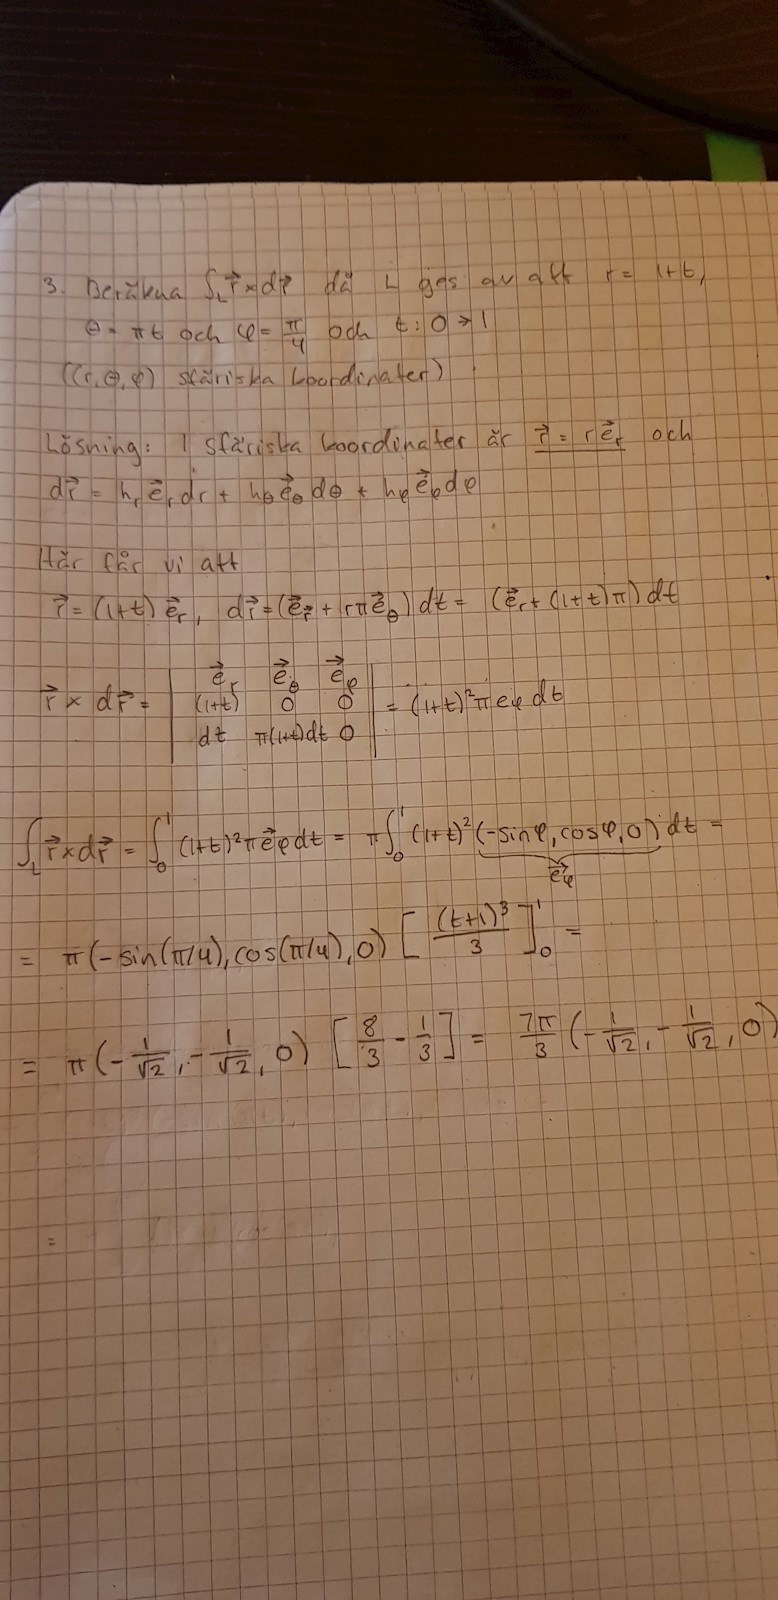 3. Beräkna ∫_L r⃗ × dr⃗ då L ges av att r = 1+t,
θ = πt och φ = π/4 och t: 0 → 1
((r, θ, φ) sfäriska koordinater)
Lösning: I sfäriska koordinater är r⃗ = re⃗_r och
dr⃗ = h_r e⃗_r dr + h_θ e⃗_θ dθ + h_φ e⃗_φ dφ
Här får vi att
r⃗ = (1+t) e⃗_r, dr⃗ = (e⃗_r + rπe⃗_θ) dt = (e⃗_r + (1+t)π) dt
r⃗ × dr⃗ = | e⃗_r e⃗_θ e⃗_φ |
| (1+t) 0 0 | = (1+t)²πe_φ dt
| dt π(1+t)dt 0 |
∫_L r⃗ × dr⃗ = ∫_0^1 (1+t)²πe⃗_φ dt = π∫_0^1 (1+t)² (-sinφ, cosφ, 0) dt =
e⃗_φ
= π(-sin(π/4), cos(π/4), 0) [ (t+1)³/3 ]_0^1 =
= π(-1/√2, -1/√2, 0) [8/3 - 1/3] = 7π/3 (-1/√2, -1/√2, 0)
=